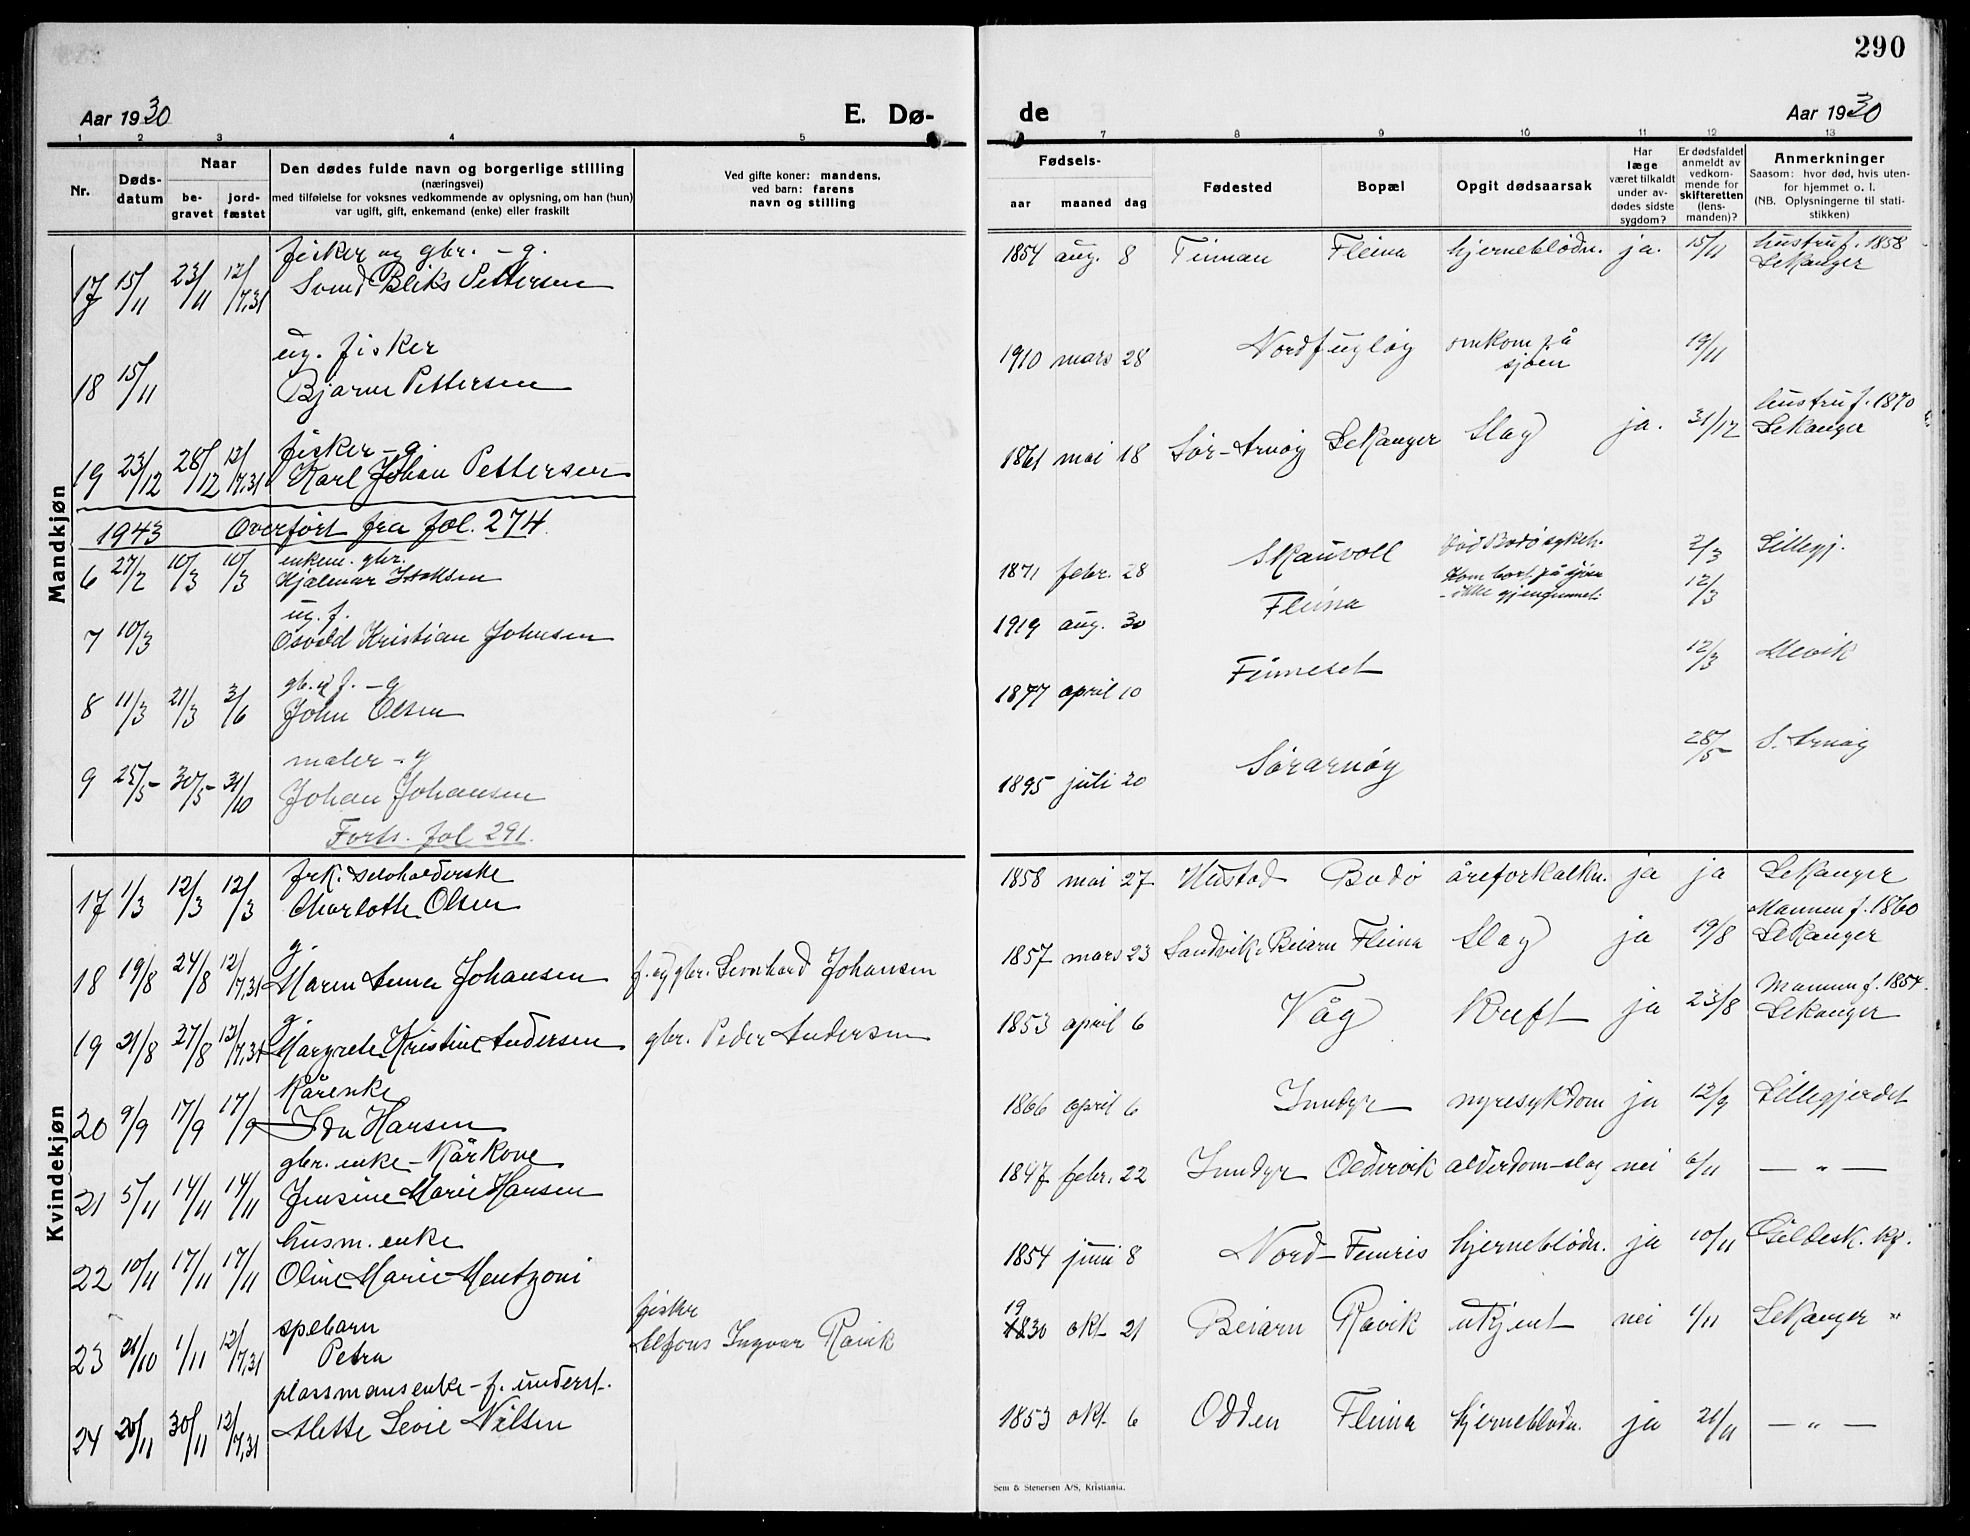 290
Aar 1930 E. Dø- de Aar 1930
1 2 3 4 5 7 8 9 10 11 12 13
Nr. Døds-datum Naar be-gravet jord-fæstet Den dødes fulde navn og borgerlige stilling (næringsvei) med tilføielse for voksnes vedkommende av oplysning, om han (hun) var ugift, gift, enkemand (enke) eller fraskilt Ved gifte koner: mandens, ved barn: farens navn og stilling Fødsels- aar maaned dag Fødested Bopæl Opgit dødsaarsak Har læge været tilkaldt under av-dødes sidste sygdom? Er dødsfaldet anmeldt av vedkom-mende for skifteretten (lens-manden)? Anmerkninger Saasom: hvor død, hvis uten-for hjemmet o. l. (NB. Oplysningerne til stati-stikken)
Mandkjøn
fisker og gbr. - g. hustru f. 1858
17 15/11 23/11 12/7,31 Svend Bliks Pettersen 1854 aug. 8 Finnan Fleina hjerneblødn. ja. 15/11 Lekanger
ug. fisker
18 15/11 Bjarne Pettersen 1910 mars 28 Nordfugløy omkom på sjøen 19/11
fisker - g. hustru f. 1870
19 23/12 28/12 12/7,31 Karl Johan Pettersen 1861 mai 18 Sør-Arnøy Lekanger Slag ja. 31/12 Lekanger
1943 Overført fra fol. 274.
enkem. gbr.
6 27/2 10/3 10/3 Hjalmar Isaksen 1871 febr. 28 Skauvoll Død Bodø sykeh. 2/3 Lillegj.
ug. f.
7 10/3 Osvald Kristian Johnsen 1919 aug. 30 Fleina Kom bort på sjøen - ikke gjenfunnet. 12/3
gb. og f. - g
8 11/3 21/3 3/6 John Olsen 1877 april 10 Finneset 12/3 Mevik
maler - g
9 25/5 30/5 31/10 Johan Johansen 1895 juli 20 Sørarnøy 28/5 S. Arnøy
Forts. fol 291.
Kvindekjøn
frk. selvholderske
17 1/3 12/3 12/3 Charlotte Olsen 1858 mai 27 Hustad Bodø åreforkalkn. ja ja Lekanger
g. Mannen f. 1860
18 19/8 24/8 12/7,31 Maren Anna Johansen f. og gbr. Leonhard Johansen 1857 mars 23 Sandvik Beiarn Fleina Slag ja 19/8 Lekanger
g. Mannen f. 1854.
19 21/8 27/8 12/7,31 Margrete Kristine Andersen gbr. Peder Andersen 1853 april 6 Våg Kreft ja 23/8 Lekanger
Kårenke
20 9/9 17/9 17/9 Ida Hansen 1866 april 6 Inndyr nyresykdom ja 12/9 Lillegjerdet
gbr. enke - Kårkone
21 5/11 14/11 14/11 Jensine Marie Hansen 1847 febr. 22 Inndyr Oldervik alderdom-slag nei 6/11 — „ —
husm. enke
22 10/11 17/11 17/11 Oline Marie Mentzoni 1854 juni 8 Nord-Finnes hjerneblødn. ja 10/11 Gildesk. kg.
spebarn fisker
23 21/10 1/11 12/7,31 Petra Alfons Ingvar Råvik 1930 okt. 21 Beiarn Råvik ukjent nei 1/11 Lekanger "
plassmansenke - f. underst.
24 20/11 30/11 12/7,31 Mette Sevie Nilsen 1853 okt. 6 Odden Fleina hjerneblødn. ja 21/11 — „ —
Sem & Stenersen A/S, Kristiania.